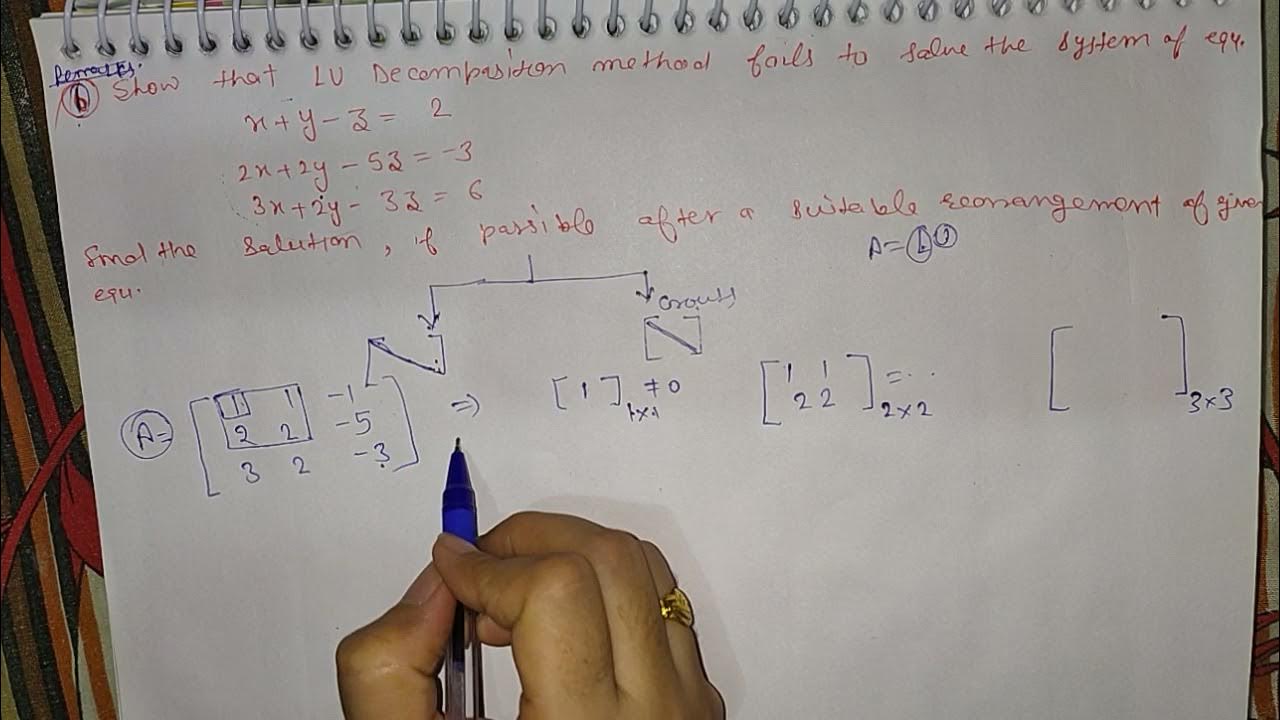 Remarks.
(b) Show that LU Decomposition method fails to solve the system of equ.
x + y - z = 2
2x + 2y - 5z = -3
3x + 2y - 3z = 6
find the solution, if possible after a suitable rearrangement of given
equ.
A = L U
Crout's
A = [ 1 1 -1 ⇒ [ 1 ]1x1 ≠ 0 [ 1 1 ] = .. [ ]3x3
2 2 -5 2 2 2x2
3 2 -3 ]